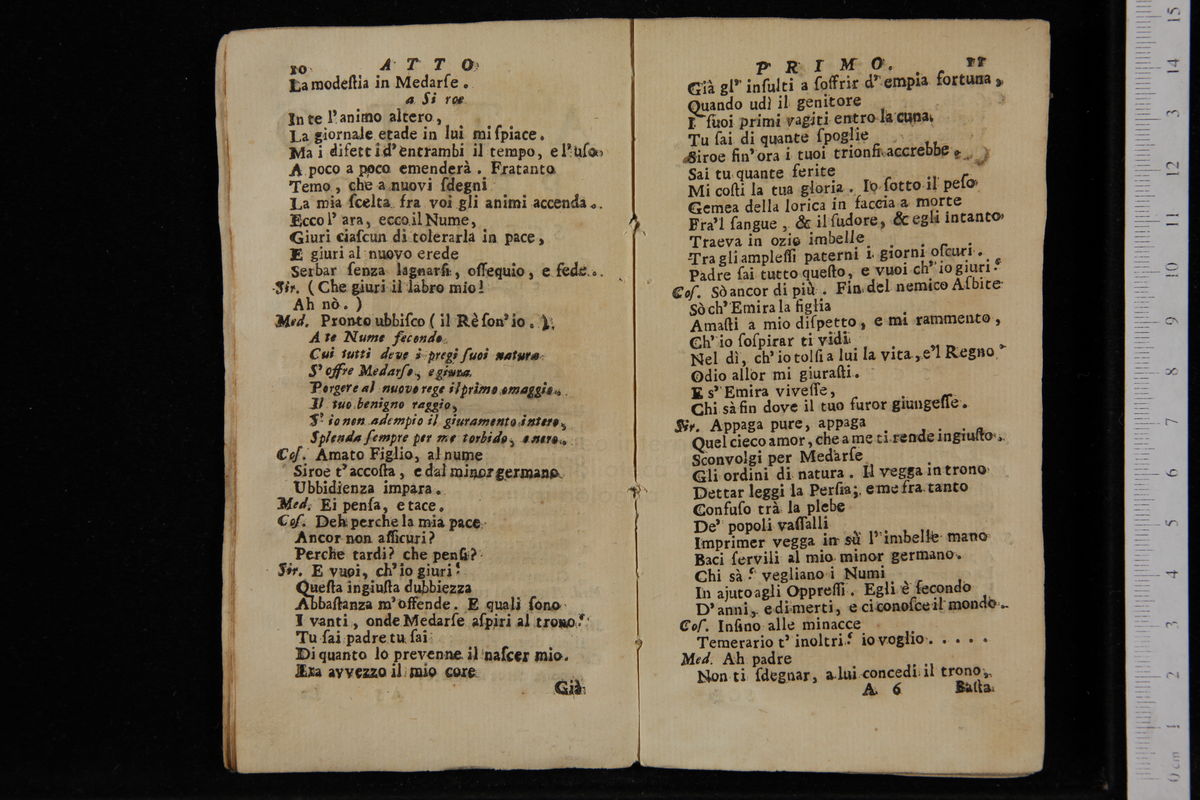 10 ATTO
La modeſtia in Medarſe.
a Si roe
In te l'animo altero,
La giornale etade in lui mi ſpiace.
Ma i difetti d'entrambi il tempo, e l'uſo
A poco a poco emenderà. Fratanto
Temo, che a nuovi ſdegni
La mia ſcelta fra voi gli animi accenda.
Ecco l'ara, ecco il Nume,
Giuri ciaſcun di tolerarla in pace,
E giuri al nuovo erede
Serbar ſenza lagnarſi, oſſequio, e fede.
Sir. (Che giuri il labro mio!
Ah nò.)
Med. Pronto ubbiſco (il Rè ſon'io.).
A te Nume fecondo
Cui tutti deve i pregi ſuoi natura
S'offre Medarſe, e giura.
Porgere al nuovo rege il primo omaggio.
Il tuo benigno raggio,
S'io non adempio il giuramento intero,
Splenda ſempre per me torbido, e nero.
Coſ. Amato Figlio, al nume
Siroe t'accoſta, e dal minor germano
Ubbidienza impara.
Med. Ei penſa, e tace.
Coſ. Deh perche la mia pace
Ancor non aſſicuri?
Perche tardi? che penſi?
Sir. E vuoi, ch'io giuri?
Queſta ingiuſta dubbiezza
Abbaſtanza m'offende. E quali ſono
I vanti, onde Medarſe aſpiri al trono?
Tu ſai padre tu ſai
Di quanto lo prevenne il naſcer mio.
Era avvezzo il mio core
Già
PRIMO. 11
Già gl' inſulti a ſoffrir d' empia fortuna,
Quando udì il genitore
I ſuoi primi vagiti entro la cuna.
Tu ſai di quante ſpoglie
Siroe fin'ora i tuoi trionfi accrebbe.
Sai tu quante ferite
Mi coſti la tua gloria. Io ſotto il peſo
Gemea della lorica in faccia a morte
Fra'l ſangue, & il ſudore, & egli intanto
Traeva in ozio imbelle
Tra gli ampleſſi paterni i giorni oſcuri.
Padre ſai tutto queſto, e vuoi ch' io giuri?
Coſ. Sò ancor di più. Fin del nemico Asbite
Sò ch' Emira la figlia
Amaſti a mio diſpetto, e mi rammento,
Ch' io ſoſpirar ti vidi
Nel dì, ch'io tolſi a lui la vita, e'l Regno
Odio allor mi giuraſti.
E s' Emira viveſſe,
Chi sà fin dove il tuo furor giungeſſe.
Sir. Appaga pure, appaga
Quel cieco amor, che a me ti rende ingiuſto.
Sconvolgi per Medarſe
Gli ordini di natura. Il vegga in trono
Dettar leggi la Perſia; e me fra tanto
Confuſo trà la plebe
De' popoli vaſſalli
Imprimer vegga in sù l' imbelle mano
Baci ſervili al mio minor germano.
Chi sà? vegliano i Numi
In ajuto agli Oppreſſi. Egli è ſecondo
D' anni, e di merti, e ci conoſce il mondo.
Coſ. Inſino alle minacce
Temerario t' inoltri? io voglio . . . . .
Med. Ah padre
Non ti ſdegnar, a lui concedi il trono,
A 6 Baſta